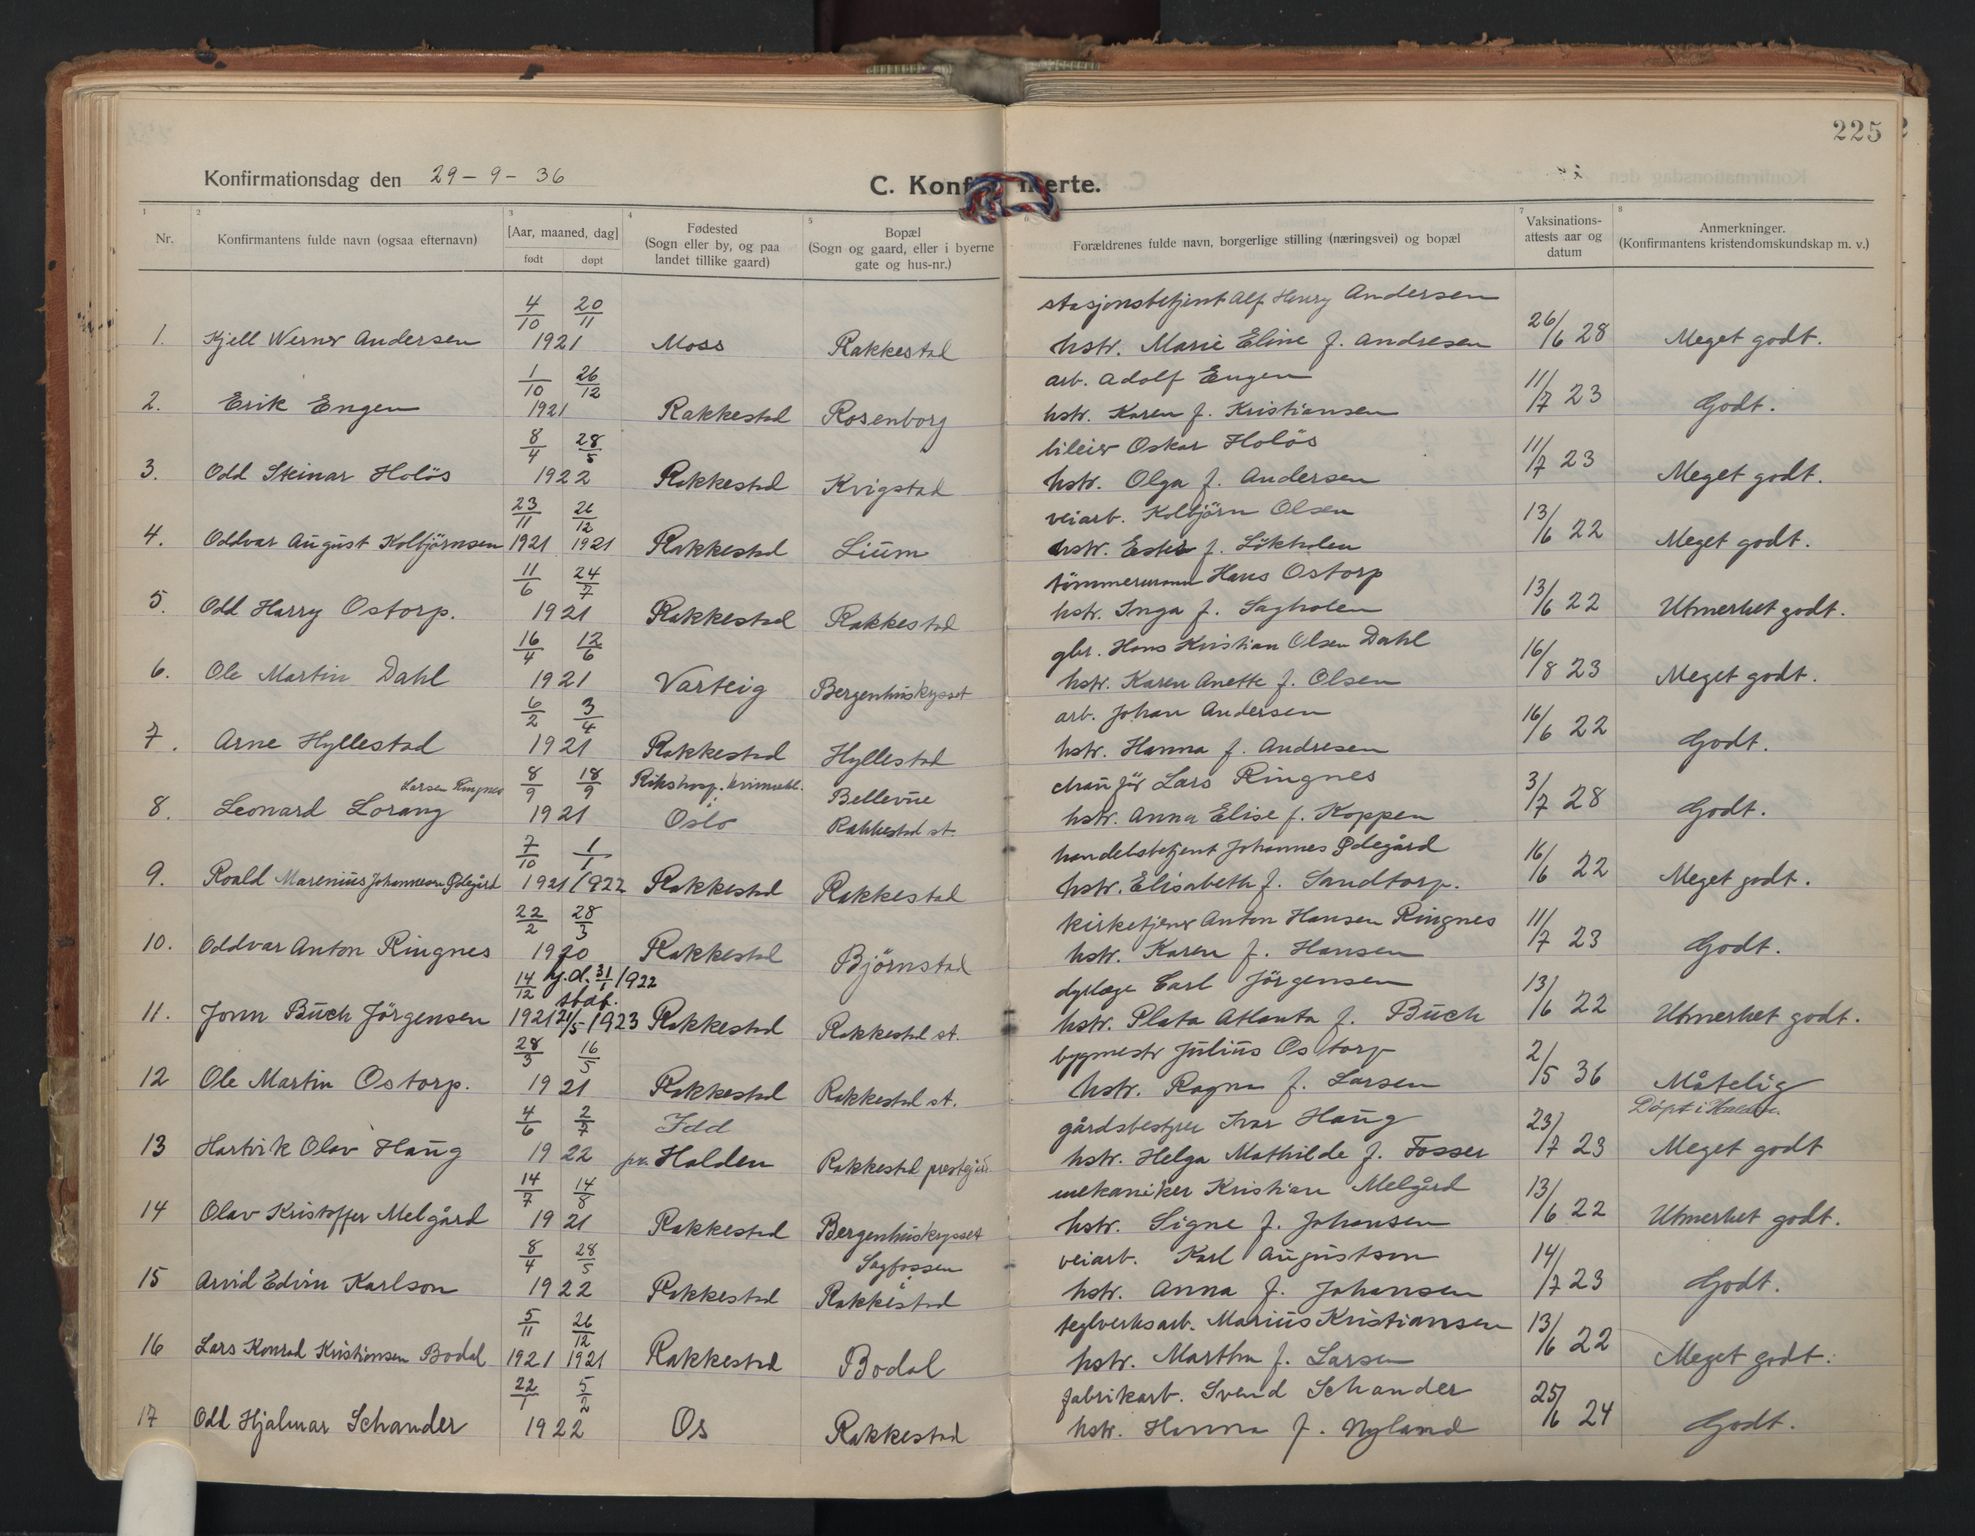 225
Konfirmationsdag den 29-9-36 C. Konf merte.
1 2 3 4 5 6 7 8
Nr. Konfirmantens fulde navn (ogsaa efternavn) [Aar, maaned, dag] født døpt Fødested (Sogn eller by, og paa landet tillike gaard) Bopæl (Sogn og gaard, eller i byerne gate og hus-nr.) Forældrenes fulde navn, borgerlige stilling (næringsvei) og bopæl Vaksinations-attests aar og datum Anmerkninger. (Konfirmantens kristendomskundskap m. v.)
4/10 20/11 stasjonsbetjent Alf Henry Andersen
1. Kjell Werner Andersen 1921 Moss Rakkestad hstr. Marie Eline f. Andresen 26/6 28 Meget godt.
1/10 26/12 arb. Adolf Engen
2. Erik Engen 1921 Rakkestad Rosenborg hstr. Karen f. Kristiansen 11/7 23 Godt.
8/4 28/5 bileier Oskar Holös
3. Odd Steinar Holös 1922 Rakkestad Kvigstad hstr. Olga f. Andersen 11/7 23 Meget godt.
23/11 26/12 veiarb. Kolbjörn Olsen
4. Oddvar August Kolbjörnsen 1921 1921 Rakkestad Lium hstr. Ester f. Lökholen 13/6 22 Meget godt.
11/6 24/7 tömmermann Hans Ostorp
5. Odd Harry Ostorp. 1921 Rakkestad Rakkestad hstr. Inga f. Sagholen 13/6 22 Utmerket godt.
16/4 12/6 gbr. Hans Kristian Olsen Dahl
6. Ole Martin Dahl 1921 Varteig Bergenhuskrysset hstr. Karen Anette f. Olsen 16/8 23 Meget godt.
6/2 3/4 arb. Johan Andersen
7. Arne Hyllestad 1921 Rakkestad Hyllestad hstr. Hanna f. Andresen 16/6 22 Godt.
Larsen Ringnes 8/9 18/9 Rikshosp. kvinnekl. Bellevue chauför Lars Ringnes
8. Leonard Lorang 1921 i Oslo Rakkestad st. hstr. Anna Elise f. Koppen 3/7 28 Godt.
7/10 1/1 handelsbetjent Johannes Ödegård
9. Roald Marenius Johannesen Ödegård 1921 1922 Rakkestad Rakkestad hstr. Elisabeth f. Sandtorp. 16/6 22 Meget godt.
22/2 28/3 kirketjener Anton Hansen Ringnes
10. Oddvar Anton Ringnes 1920 Rakkestad Björnstad hstr. Karen f. Hansen 11/7 23 Godt.
14/12 hj.d. 31/1 1922 dyrlæge Carl Jörgensen
11. Jonn Buch Jörgensen 1921 stadf. 21/5 1923 Rakkestad Rakkestad st. hstr. Plata Atlanta f. Buch 13/6 22 Utmerket godt.
28/3 16/5 bygmestr Julius Ostorp
12 Ole Martin Ostorp. 1921 Rakkestad Rakkestad st. hstr. Ragna f. Larsen 2/5 36 Måtelig
4/6 2/7 Idd gårdsbestyrer Ivar Haug Döpt i Halden.
13 Hartvik Olav Haug 1922 pr. Halden Rakkestad prestgård hstr. Helga Mathilde f. Fosser 23/7 23 Meget godt
14/7 14/8 mekaniker Kristian Melgård
14 Olav Kristoffer Melgård 1921 Rakkestad Bergenhuskrysset hstr. Signe f. Johansen 13/6 22 Utmerket godt.
8/4 28/5 Sagfossen veiarb. Karl Augustson
15 Arvid Edvin Karlson 1922 Rakkestad i Rakkestad hstr. Anna f. Johansen 14/7 23 Godt.
5/11 26/12 teglverksarb. Marius Kristiansen
16 Lars Konrad Kristiansen Bodal 1921 1921 Rakkestad Bodal hstr. Martha f. Larsen 13/6 22 Meget godt.
22/1 5/2 fabrikarb. Svend Schander
17 Odd Hjalmar Schander 1922 Os Rakkestad hstr. Hanna f. Nyland 25/6 24 Godt.